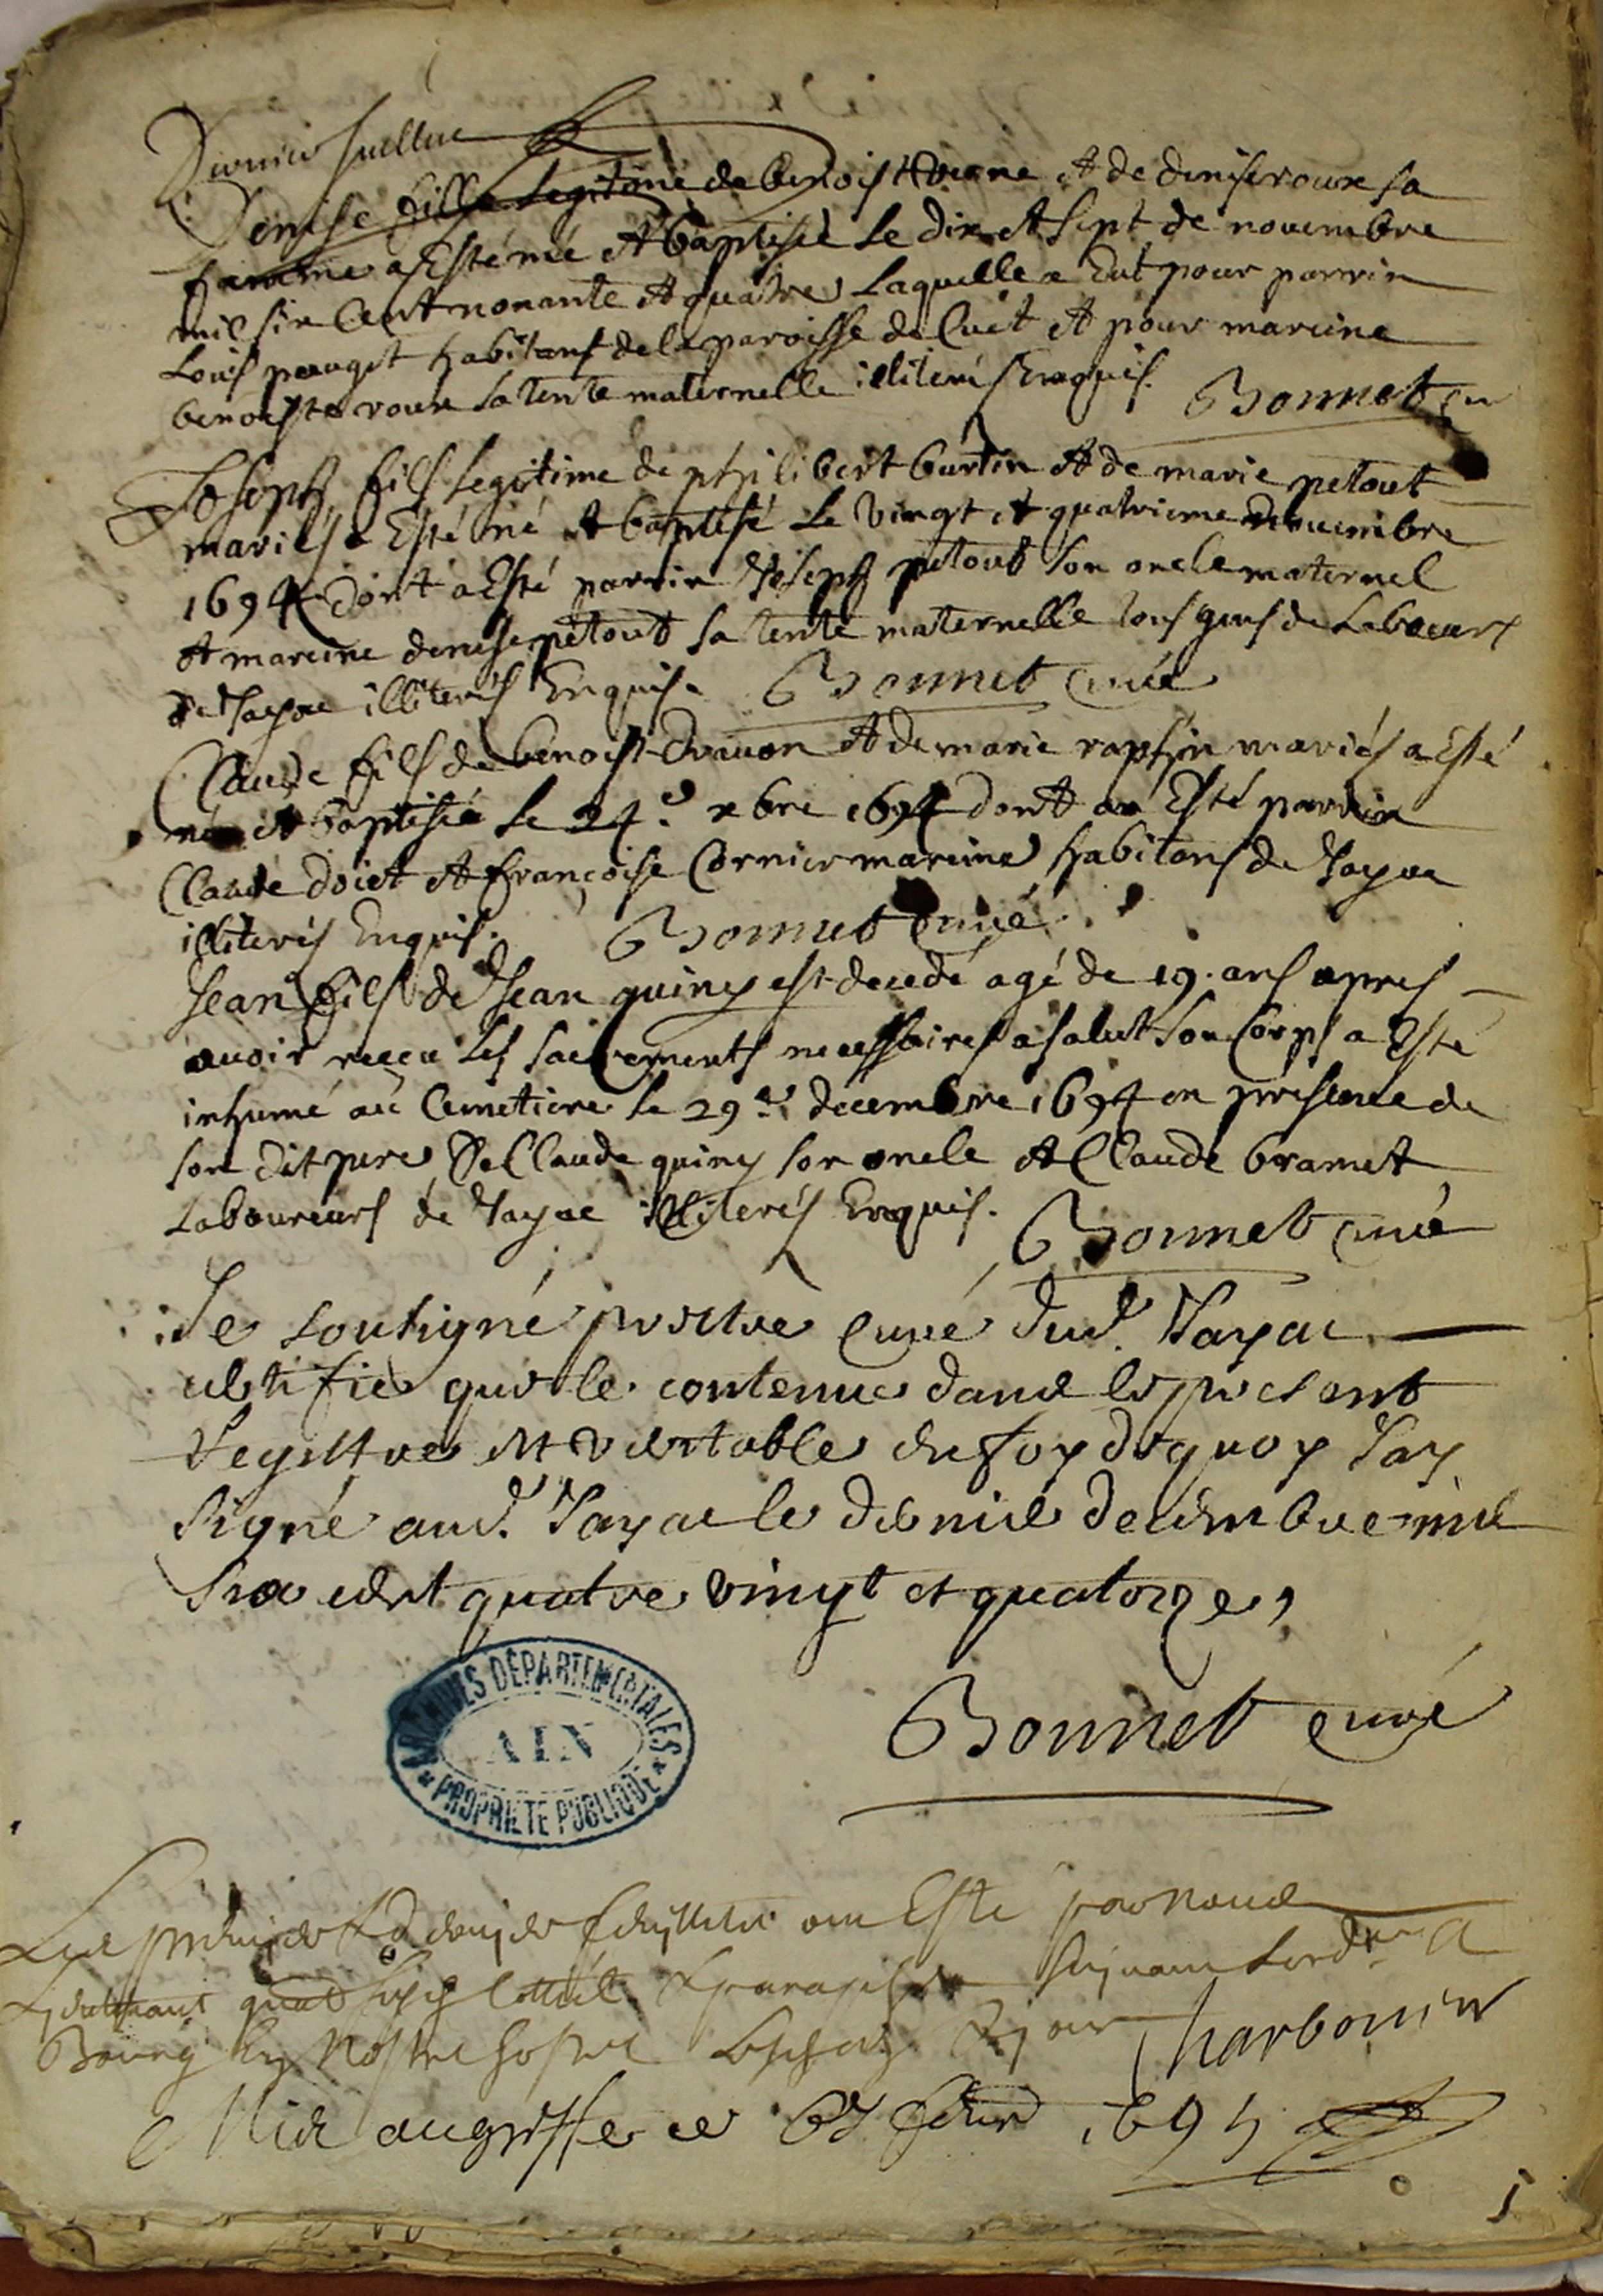 Dernier fuellet
Denise fille Legitime de benoist Vierne et de denise roux sa
famme a Esté née et baptisée Le dix et sept de novembre
mil six Cent nonante et quatre Laquelle a Eut pour parrin
Louis pauget habitans de la paroisse de Cuét et pour mareine
benoiste roux sa tente maternelle illiterés Enquis. Bonnet Cu
Joseph fils Legitime de philibert burtin et de marie petout
mariés a Esté né et baptisé Le Vingt et quatrieme novembre
1694 dont a Esté parrin Joseph petout son oncle maternel
et mareine denise petout sa tente maternelle tous gens de Labeurs
de Jayac illiterés Enquis. Bonnet Curé
Claude fils de benoist et de marie maries a Esté
né et baptisé Le 24.e xbre 1694 dont a Esté parrin
Claude doict et françoise Cornier mareine habitans de Jayac
illiterés Enquis. Bonnet Curé
Jean fils de Jean quiny est decedé agé de 19. ans apres
avoir reçeu les sacrements necessaires a salut son Corps a Esté
inhumé au Cemetiere Le 29.e decembre 1694 en présence de
son dit pere De Claude quiny son oncle et Claude bramet
Laboureurs de Jayac illiterés Enquis. Bonnet Curé
Je soubsigné prestre Curé dud. Jayac
certifie que le contenue dans le present
Registre est veritable en foy de quoy Jay
signé aud. Jayac le dernier decembre mil
six cent quatre vingt et quatorze,
ARCHIVES DÉPARTEMENTALES
AIN
PROPRIÉTÉ PUBLIQUE
Bonnet curé
Les premier et dernier feuillets ont Esté par nous
Lieutenant cottés et paraphés suivant Lord.re A
Bourg En Nostre hostel
Charbonnier
Mis au greffe ce feur 1695